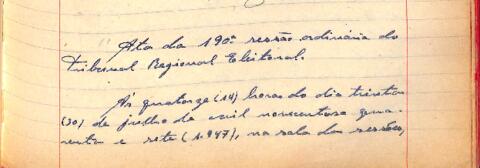 Ata da 190ª sessão ordinária do
Tribunal Regional Eleitoral.
Ás quatorze (14) horas do dia trinta
(30) de julho de mil novecentose qua-
renta e sete (1.947), na sala das sessões,